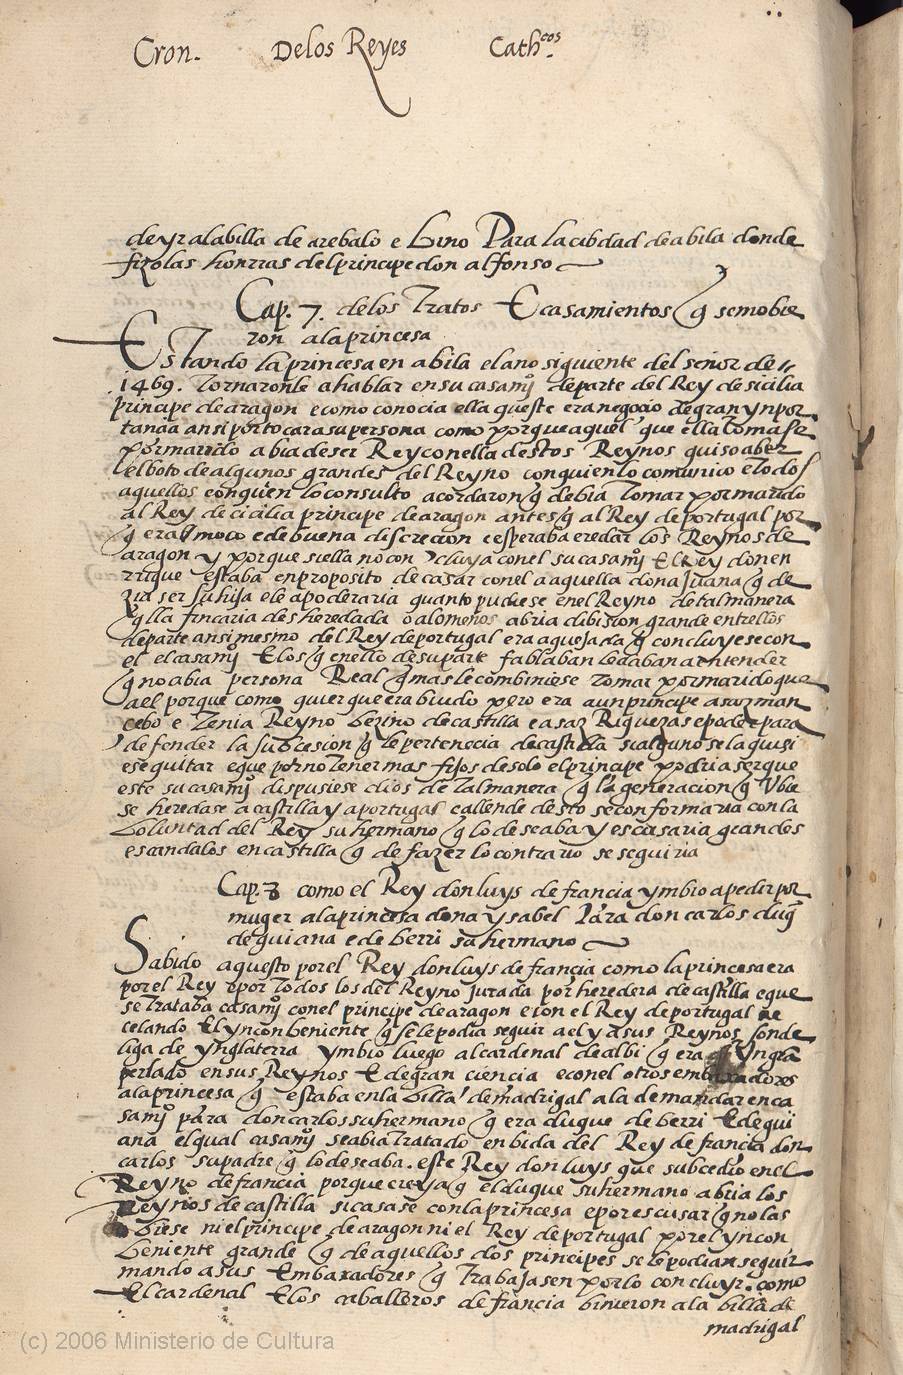 Cron. Delos Reyes Cath.cos
de yr ala billa de arebalo e bino Para la cibdad de abila donde
fizo las honrras del principe don alfonso
Cap. 7. delos Tratos E casamientos q̃ se mobie
ron ala princesa
Estando la princesa en abila el ano siguiente del señor de
1469. tornaronle a hablar en su casamj.o de parte del Rey de sicilia
principe de aragon e como conocia ella que este era negocio de gran ynpor
tancia ansi por tocar a su persona como porque aquel que ella tomase
por marido abia de ser Rey con ella destos Reynos quiso aber
el boto de algunos grandes del Reyno con quien lo comunico e todos
aquellos con quien lo consulto acordaron q̃ debia tomar por marido
al Rey de cicilia principe de aragon antes q̃ al Rey de portugal por
q̃ era moço e de buena discrecion e esperaba eredar los Reynos de
aragon y porque si ella no concluya con el su casamj.o El Rey don en
rrique estaba en proposito de casar con el a aquella dona Juana q̃ de
zia ser su hija e le apoderaria quanto pudiese en el Reyno de tal manera
q̃ lla fincaria desheredada o alomenos abria dibision grande entrellos
de parte ansi mesmo del Rey de portugal era aquejada q̃ concluyese con
el el casamj.o E los q̃ en ello de su parte fablaban le daban a entender
q̃ no abia persona Real q̃ mas le combiniese tomar por marido que
a el porque como quier que era biudo pero era aun principe asaz man
cebo e tenia Reyno bezino de castilla e asaz Riquezas e poder para
defender la subcesion q̃ le pertenecia de castilla si alguno se la quisi
ese quitar e que por no tener mas fijos de solo el principe podria ser que
este su casamj.o dispusiese dios de tal manera q̃ la generacion q̃ Vbie
se heredase a castilla y a portugal e allende desto se conformaria con la
boluntad del Rey su hermano q̃ lo deseaba y escusaria grandes
escandalos en castilla q̃ de fazer lo contrario se seguiria
Cap. 8 como el Rey don luys de francia ymbio a pedir por
muger ala princesa dona ysabel Para don carlos duq̃
de guiana e de berri su hermano
Sabido aquesto por el Rey don luys de francia como la princesa era
por el Rey e por Todos los del Reyno jurada por heredera de castilla e que
se trataba casamj.o con el principe de aragon e con el Rey de portugal Re
celando El ynconbeniente q̃ se le podia seguir a el y a sus Reynos sonde
liga de ynglaterra ymbio luego al cardenal de albi q̃ era
perlado en sus Reynos E de gran ciencia e con el otros embaxadores
ala princesa q̃ estaba en la billa de madrigal a la demandar en ca
samj.o para don carlos su hermano q̃ era duque de berri E de gui
ana el qual casamj.o se abia tratado en bida del Rey de francia don
carlos su padre q̃ lo deseaba. este Rey don luys que subcedio en el
Reyno de francia porque creya q̃ el duque su hermano abria los
Reynos de castilla si casase con la princesa e por escusar q̃ no las
biese ni el principe de aragon ni el Rey de portugal por el yncon
beniente grande q̃ de aquellos dos principes se le podian seguir
mando a sus Embaxadores q̃ Trabajasen por lo concluyr. como
El cardenal E los caballeros de francia binieron ala billa de
madrigal
(c) 2006 Ministerio de Cultura